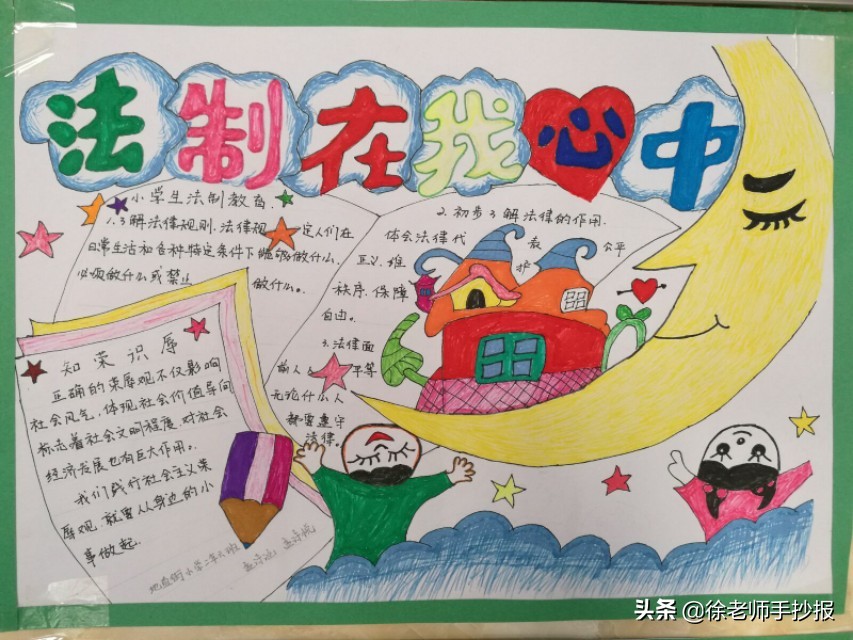 法制在我心中
小学生法制教育、
1.了解法律规则、法律规定人们在
日常生活和各种特定条件下能够做什么、
必须做什么或禁止做什么。
2.初步了解法律的作用.
体会法律代表公平
正义、维护
秩序、保障
自由。
3.法律面
前人人平等
无论什么人
都要遵守
法律。
知荣识辱
正确的荣辱观不仅影响
社会风气、体现社会价值导向
标志着社会文明程度、对社会
经济发展也有巨大作用。
我们践行社会主义荣
辱观,就要从身边的小
事做起.
头条 @徐老师手抄报